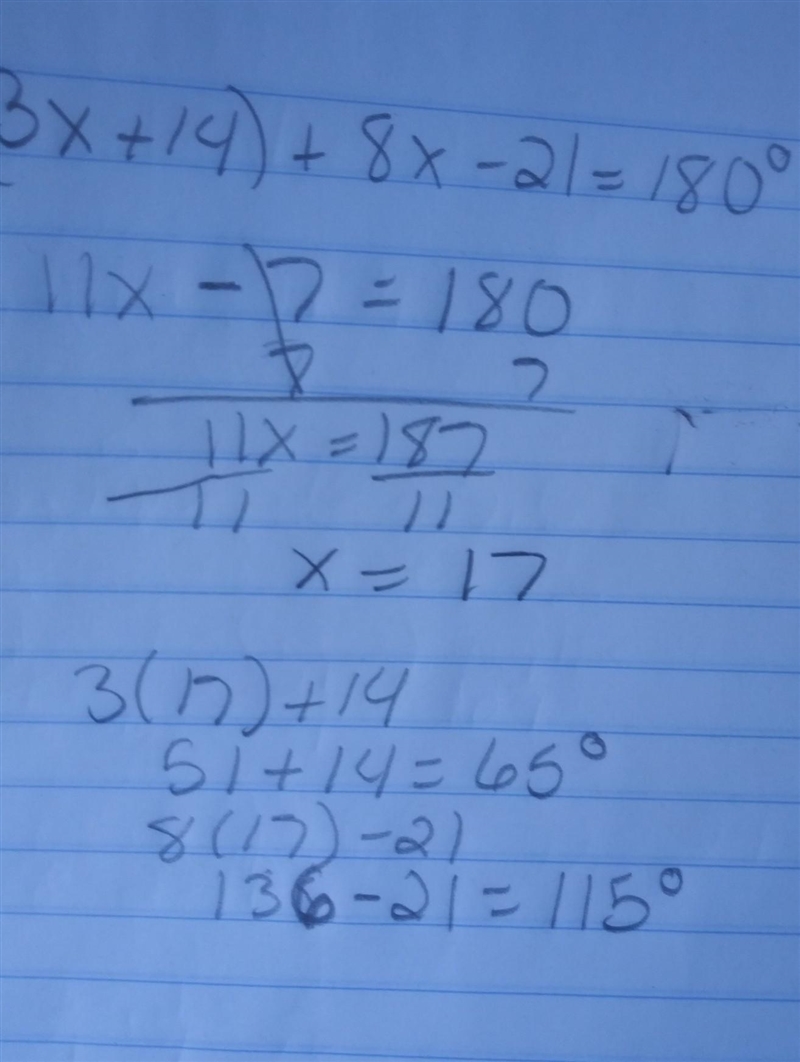 (3x + 14) + 8x - 21 = 180°
11x - 7 = 180
7 7
11x = 187
11 11
x = 17
3(17) + 14
51 + 14 = 65°
8(17) - 21
136 - 21 = 115°